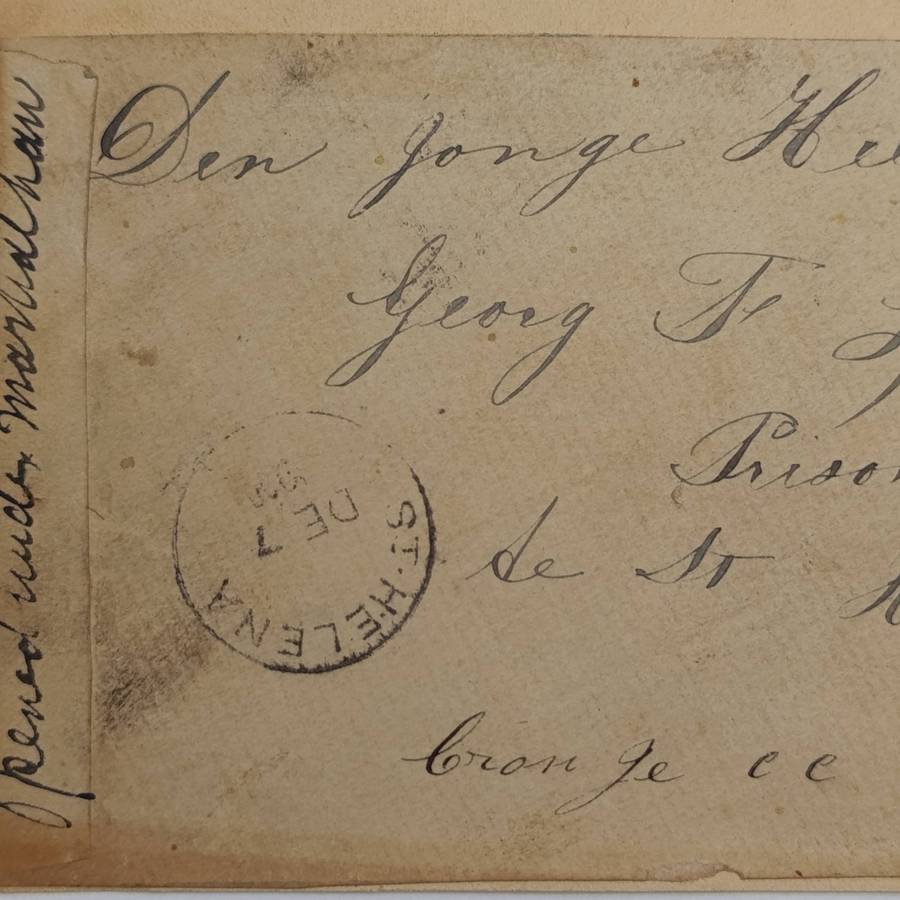 Opened under Martial Law
Den jonge Hee
Georg F
Prison
te St H
Cronje ee
ST. HELENA
DE 7
00